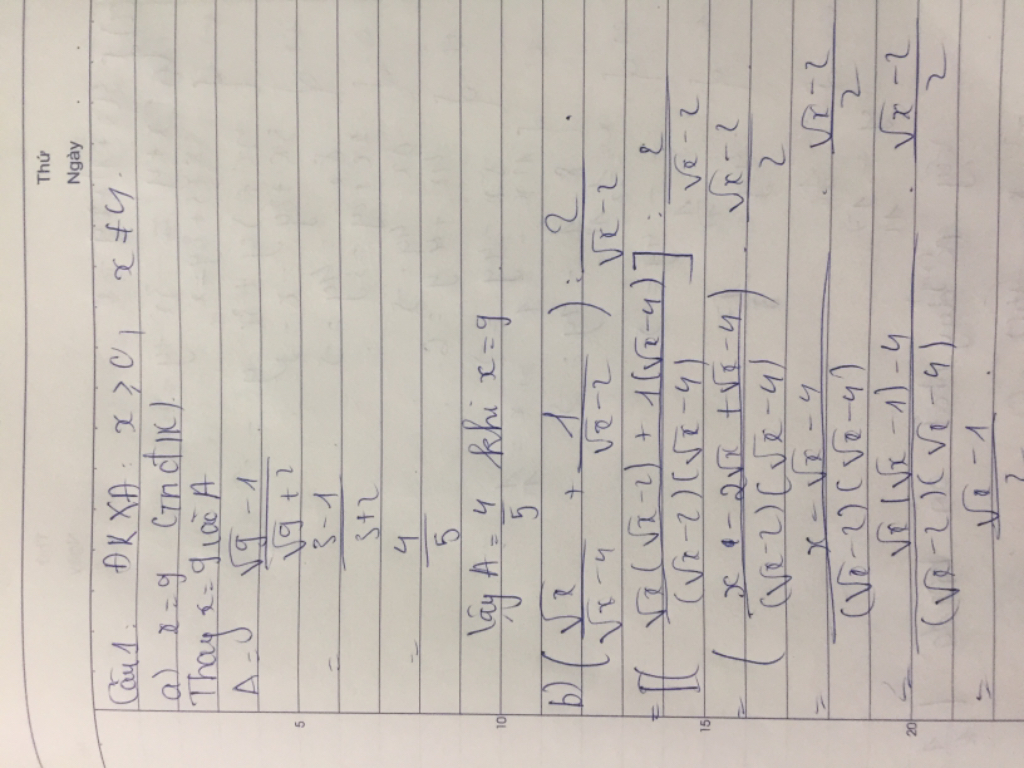 Thứ
Ngày
Câu 1: ĐKXĐ: x ≥ 0, x ≠ 4.
a) x = 9 (TMĐK).
Thay x = 9 vào A
A = (√9 - 1)/(√9 + 2)
5
= (3 - 1)/(3 + 2)
= 4/5
Vậy A = 4/5 khi x = 9
10
b) (√x/(√x - 4) + 1/(√x - 2)) : 2/(√x - 2)
= [(√x(√x - 2) + 1(√x - 4))/((√x - 2)(√x - 4))] : 2/(√x - 2)
15
= (x - 2√x + √x - 4)/((√x - 2)(√x - 4)) . (√x - 2)/2
= (x - √x - 4)/((√x - 2)(√x - 4)) . (√x - 2)/2
= (√x(√x - 1) - 4)/((√x - 2)(√x - 4)) . (√x - 2)/2
20
= (√x - 1)/2